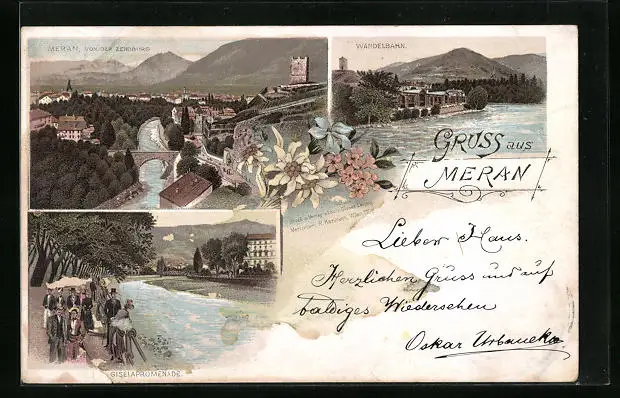 MERAN, VON DER ZENOBURG
WANDELBAHN.
GRUSS aus
MERAN
Lieber Haus.
Herzlichen Gruss und auf
baldiges Wiedersehen
Oskar Urbanek
GISELAPROMENADE.